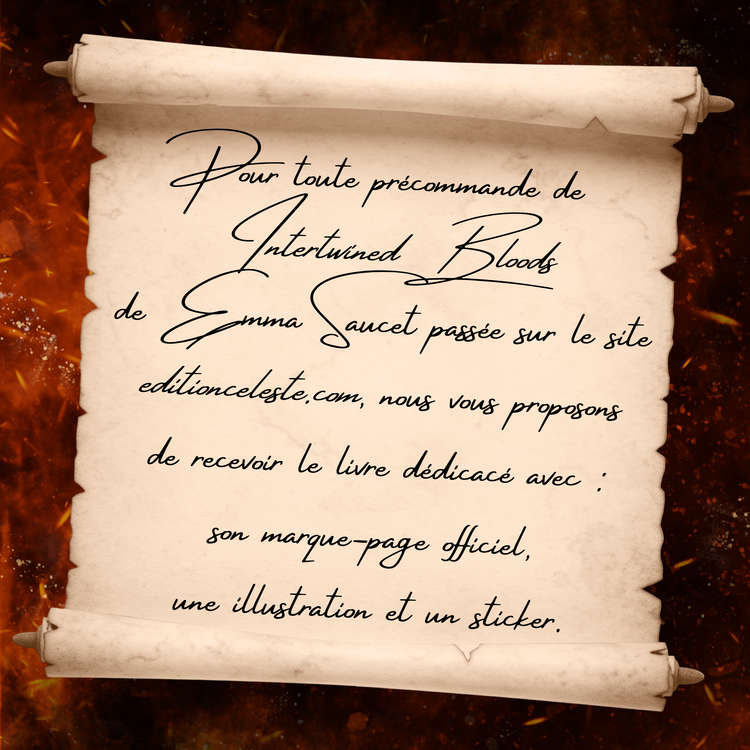 Pour toute précommande de
Intertwined Bloods
de Emma Saucet passée sur le site
editionceleste.com, nous vous proposons
de recevoir le livre dédicacé avec :
son marque-page officiel,
une illustration et un sticker.